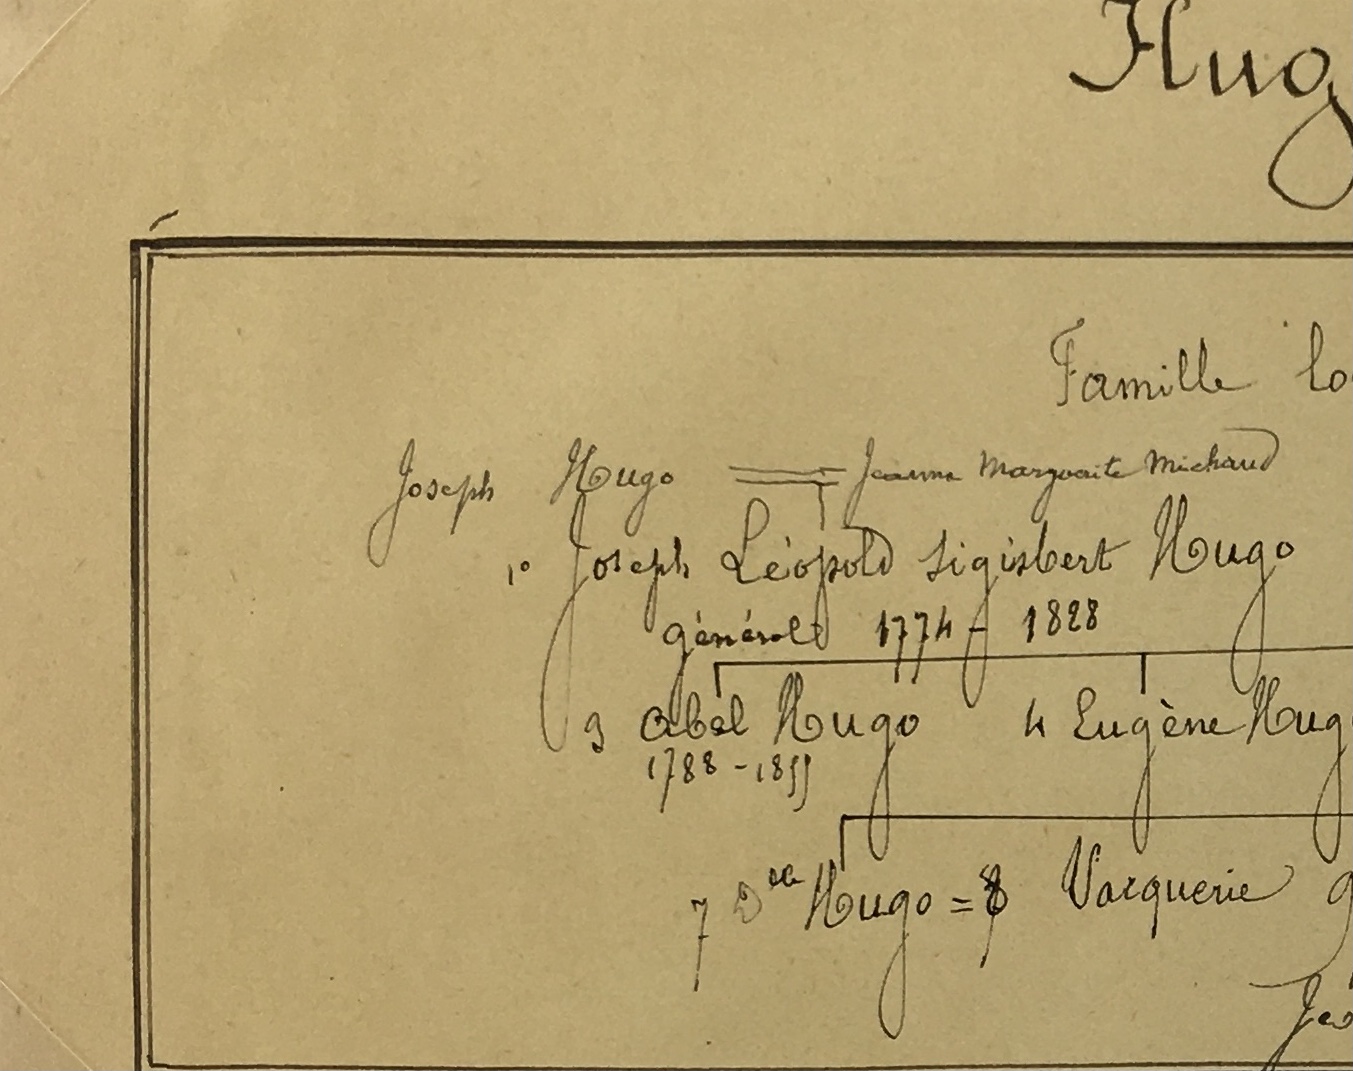 Hug
Famille lo
Joseph Hugo = Jeanne Marguerite Michaud
1° Joseph Léopold Sigisbert Hugo
général 1774 - 1828
3 Abel Hugo 4 Eugène Hug
1788 - 1855
7 Dlle Hugo = 8 Vacquerie 9